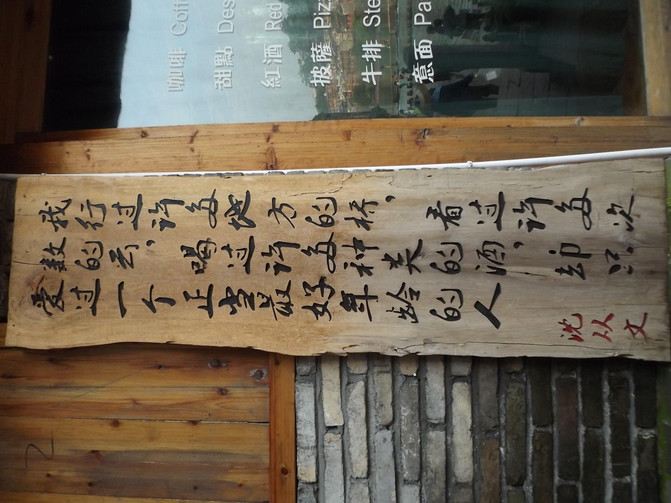 咖啡 Coff
甜點 Des
紅酒 Red
披薩 Piz
牛排 Ste
意面 Pa
我行过许多地方的桥，看过许多次
数的云，喝过许多种类的酒，却只
爱过一个正当最好年龄的人
沈从文